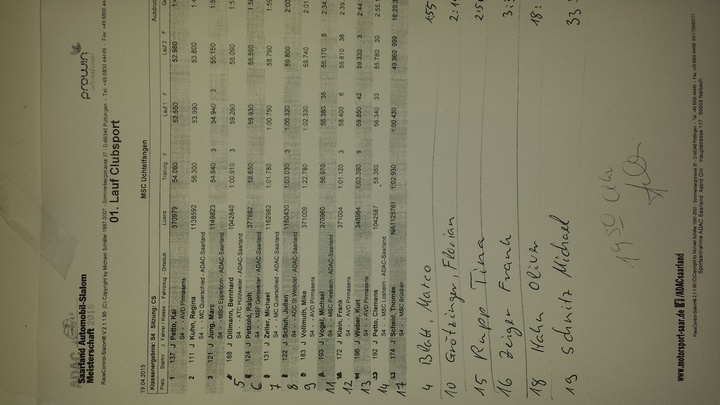 ADAC
Saarland Automobil-Slalom
Meisterschaft 2015
prowin
international
RaceControl-Slalom® V.2.1.1.95 (C) Copyright by Michael Schäfer 1997-2007 - Sommerbergstrasse 37 - D-66346 Püttlingen - Tel: +49 6898 44449 - Fax: +49 6898
01. Lauf Clubsport
19.04.2015 MSC Uchtelfangen
Klassenergebnis: S4 Sitzung: CS Ausdruc
Platz Startnr J Fahrer / Klasse - Fahrzeug - Ortsclub Lizenz Training F Lauf 1 F Lauf 2 F Ge
1 137 J Petto, Kai 370979 54.060 52.550 52.980 1:4
S4 - - AVD Pirmasens
2 111 J Kuhn, Regina 1138592 56.300 53.990 53.800 1:4
S4 - - MC Quierschied - ADAC-Saarland
3 121 J Jung, Marc 1149823 54.940 3 54.940 3 55.150 1:5
S4 - - MSC Eppelborn - ADAC-Saarland
5 188 J Dillmann, Bernhard 1042840 1:00.910 3 59.260 59.090 1:5
S4 - - ATC Hülzweiler - ADAC-Saarland
6 124 J Petzold, Ralph 377882 58.850 59.930 58.590 1:5
S4 - - MSF Gersweiler - ADAC-Saarland
7 131 J Zeller, Michael 1162982 1:01.780 1:00.750 58.790 1:59
S4 - - MC Quierschied - ADAC-Saarland
8 122 J Schuh, Julien 1150430 1:03.030 3 1:00.320 59.800 2:00
S4 - - ACC St Wendel - ADAC-Saarland
9 183 J Vollmuth, Mike 371009 1:22.780 1:02.330 58.740 2:01
S4 - - AVD Pirmasens
11 193 J Vogel, Michael 370960 56.970 56.380 36 56.170 6 2:34
S4 - - MSC Piesbach - ADAC-Saarland
12 172 J Klein, Frank 371004 1:01.120 3 58.400 6 58.810 36 2:39.
S4 - - AVD Pirmasens
13 196 J Weber, Kurt 348964 1:03.390 9 59.850 42 59.330 3 2:44.
S4 - - AVD Pirmasens
14 192 J Petto, Clemens 1042587 58.360 56.340 33 55.780 30 2:55.
S4 - - MSC Losheim - ADAC-Saarland
17 174 J Scheid, Thomas NA1125761 1:02.930 1:00.430 49.960 999 18:29.3
S4 - - MSC Brücken
4 Blatt, Marco 1:55
10 Grötzinger, Florian 2:1
15 Rupp Tina 2:5
16 Zeiger Frank 3:
18 Hahn Oliver 18:
19 Schmitz Michael 33
19 50 Uhr
www.motorsport-saar.de f /ADACsaarland
RaceControl-Slalom® V.2.1.1.95 (C) Copyright by Michael Schäfer 1997-2007
Sportzeitnahme ADAC Saarland Astrid Gilli Hauptstrasse 117 66809 Nalbach